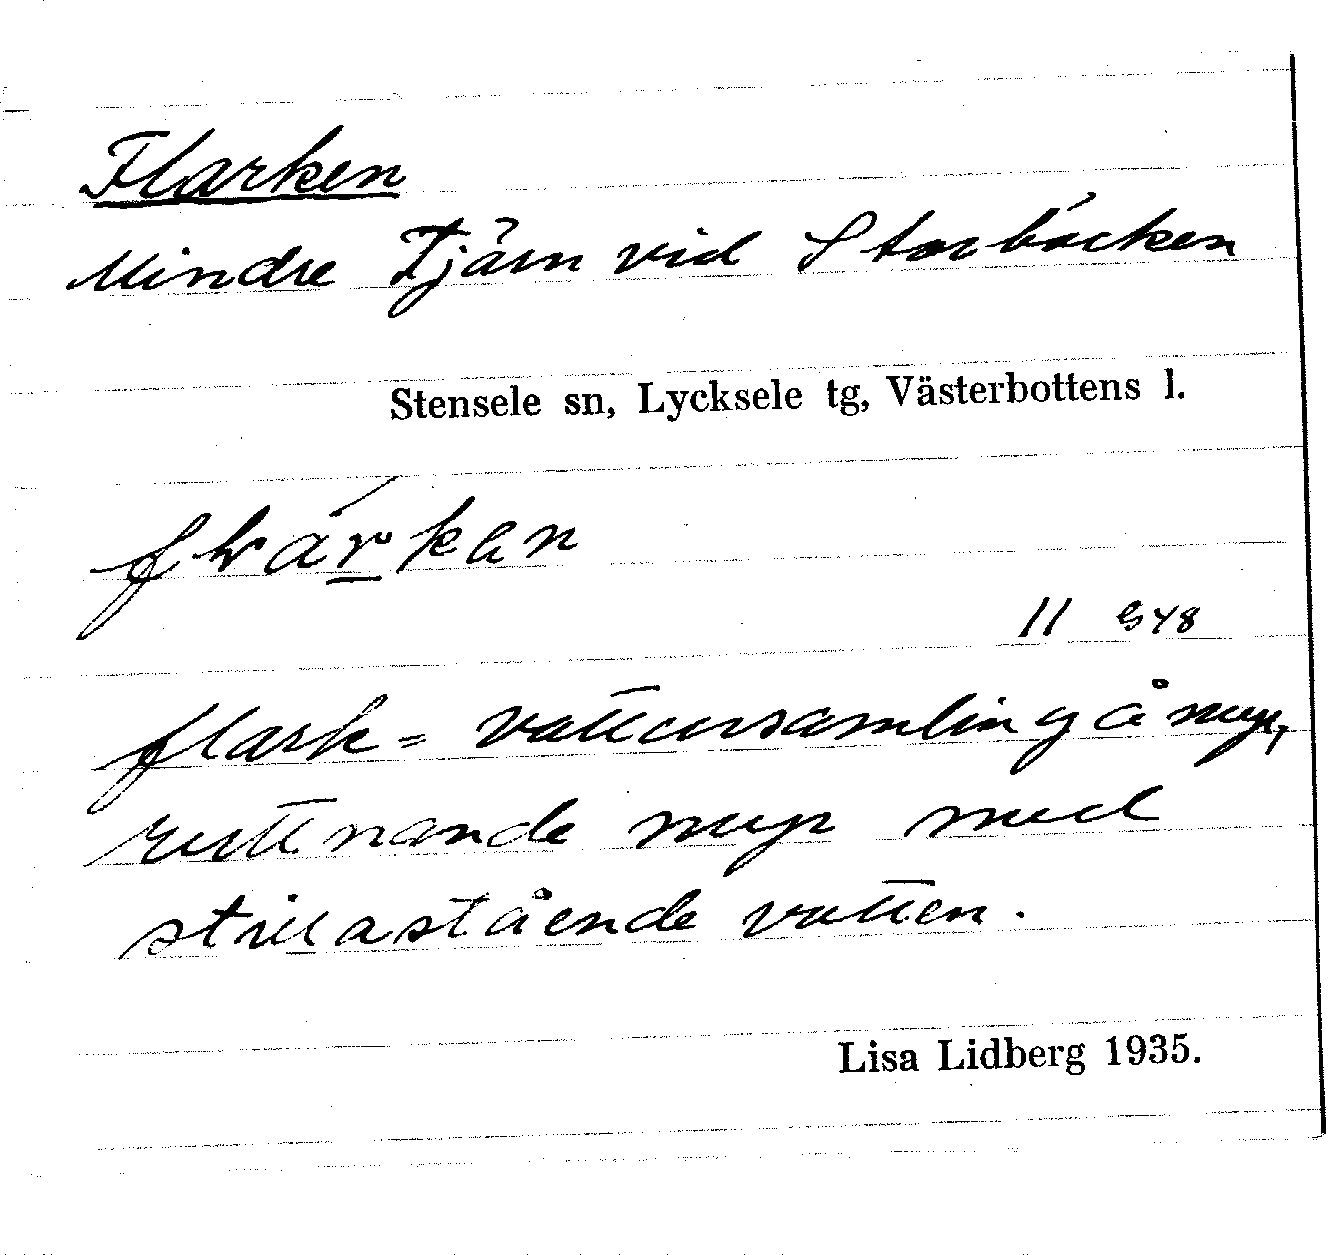 Flarken
Mindre Tjärn vid Storbäcken
Stensele sn, Lycksele tg, Västerbottens l.
11
flark = vattensamling å myr,
ruttnande myr med
stillastående vatten.
Lisa Lidberg 1935.